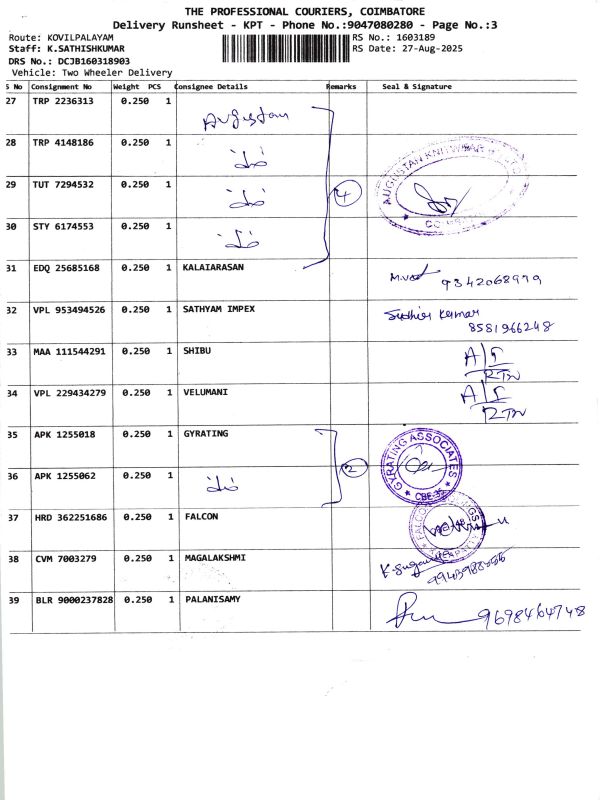 THE PROFESSIONAL COURIERS, COIMBATORE
Delivery Runsheet - KPT - Phone No.:9047080280 - Page No.:3
Route: KOVILPALAYAM RS No.: 1603189
Staff: K.SATHISHKUMAR RS Date: 27-Aug-2025
DRS No.: DCJB160318903
Vehicle: Two Wheeler Delivery
S No Consignment No Weight PCS Consignee Details Remarks Seal & Signature
27 TRP 2236313 0.250 1 Augustan
28 TRP 4148186 0.250 1
29 TUT 7294532 0.250 1 4
30 STY 6174553 0.250 1
31 EDQ 25685168 0.250 1 KALAIARASAN 9342068999
32 VPL 953494526 0.250 1 SATHYAM IMPEX Kumar
8581966248
33 MAA 111544291 0.250 1 SHIBU A/S
RTN
34 VPL 229434279 0.250 1 VELUMANI A/S
RTN
35 APK 1255018 0.250 1 GYRATING GYRATING ASSOCIATES CBE-35
36 APK 1255062 0.250 1 2
37 HRD 362251686 0.250 1 FALCON FALCON
38 CVM 7003279 0.250 1 MAGALAKSHMI
39 BLR 9000237828 0.250 1 PALANISAMY 9698464748